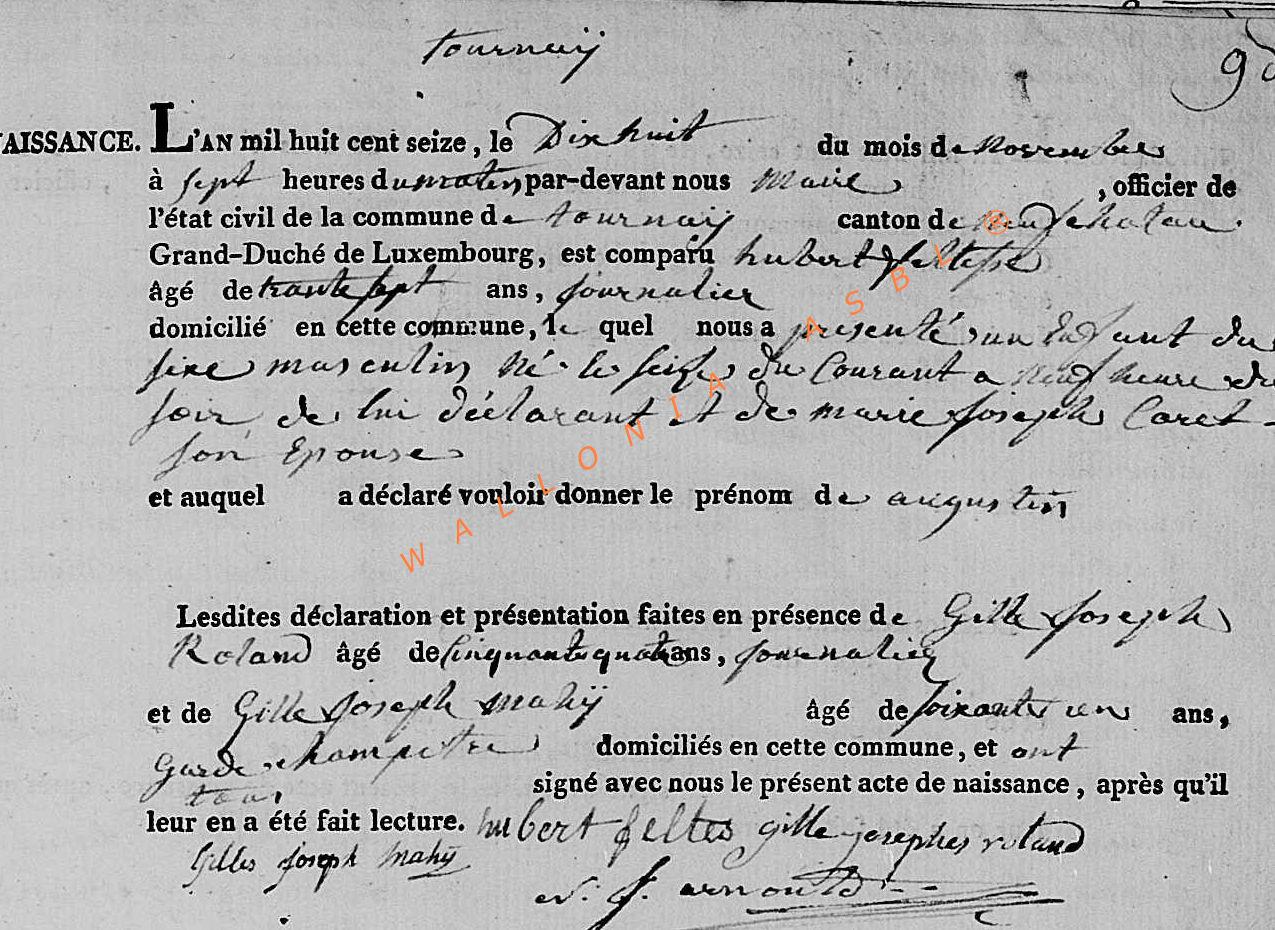 tournaÿ
9
AISSANCE. L'AN mil huit cent seize, le Dix huit du mois de novembre
à sept heures du matin par-devant nous Maire, officier de
l'état civil de la commune de tournaÿ canton de neufchateau.
Grand-Duché de Luxembourg, est comparu hubert feltesse
âgé de trente sept ans, journalier
domicilié en cette commune, le quel nous a presenté un Enfant du
sexe masculin Né le seize du Courant a neuf heure du
soir de lui déclarant et de marie Joseph Caret
son Epouse
et auquel a déclaré vouloir donner le prénom de augustin
Lesdites déclaration et présentation faites en présence de Gille Joseph
Roland âgé de Cinquante quatre ans, journalier
et de Gille Joseph Mahÿ âgé de soixante un ans,
Garde champetre domiciliés en cette commune, et ont
tous signé avec nous le présent acte de naissance, après qu'il
leur en a été fait lecture. hubert feltes gille josephes roland
Gilles Joseph Mahÿ
N. J. arnould
WALLONIA ASBL ©